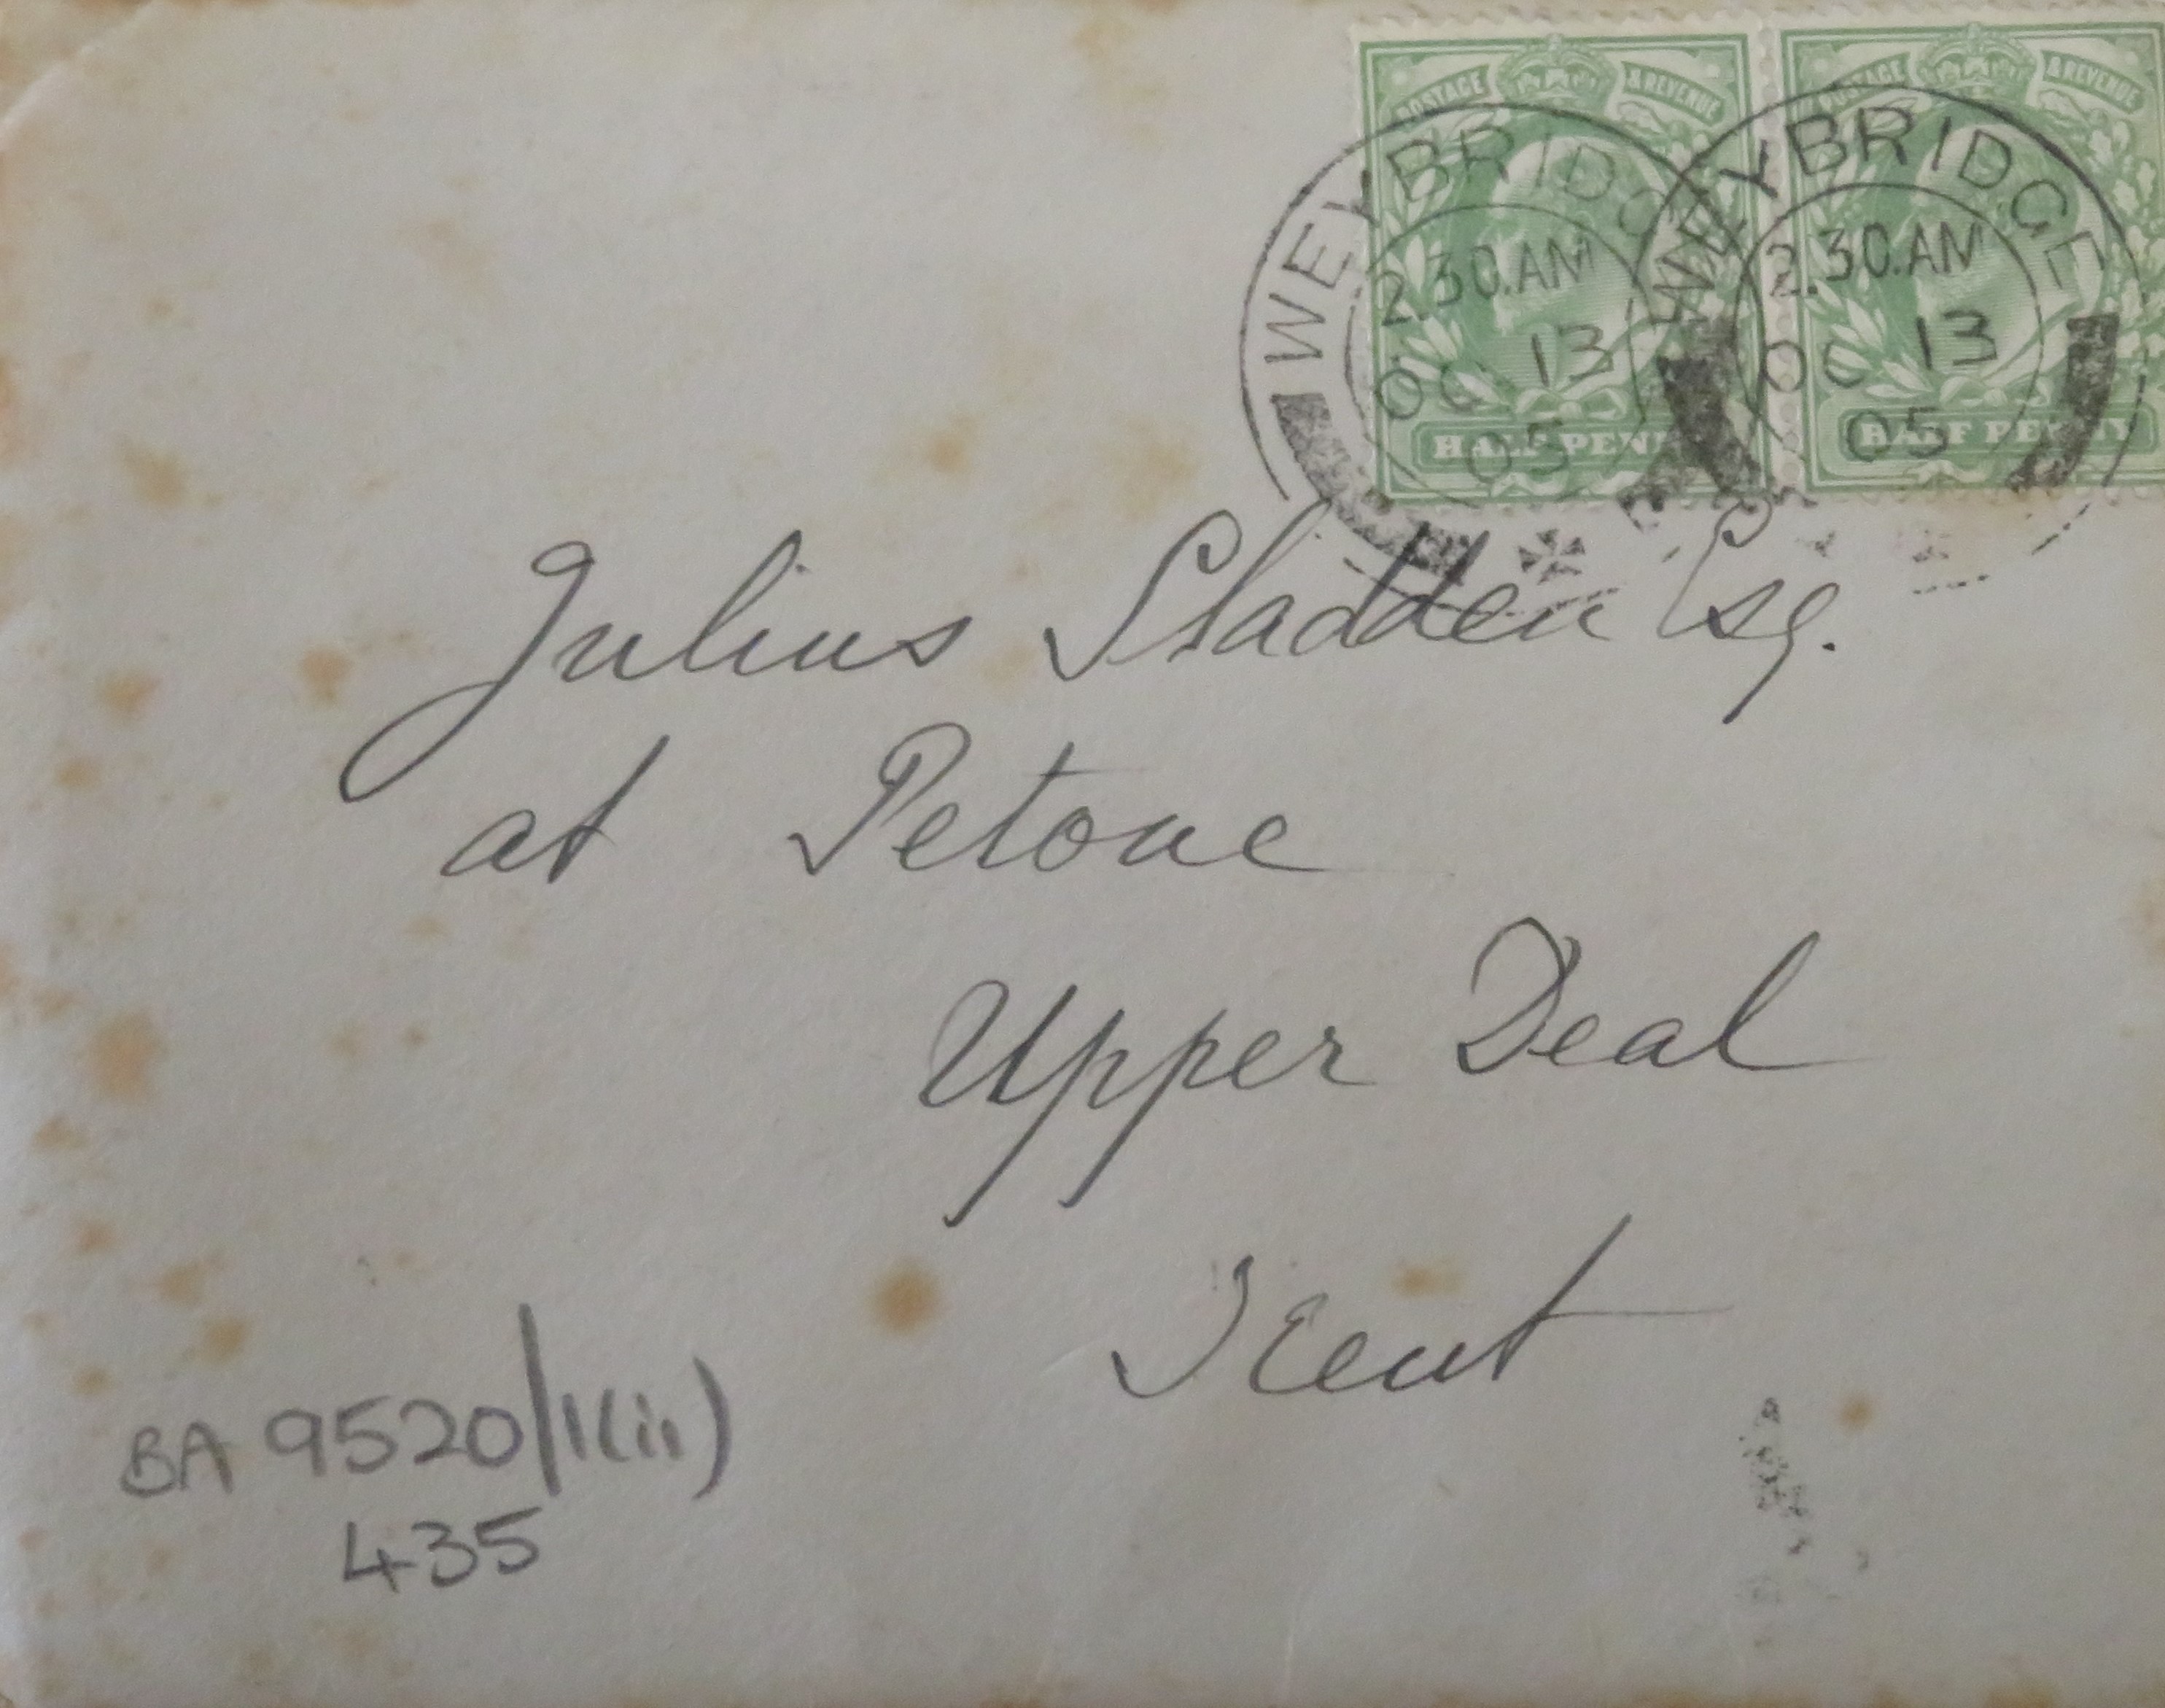 POSTAGE & REVENUE POSTAGE & REVENUE
WEYBRIDGE WEYBRIDGE
2.30.AM 2.30.AM
OC 13 OC 13
05 05
HALF PENNY HALF PENNY
Julius Sladden Esq.
at Petone
Upper Deal
Kent
BA 9520/1(ii)
435